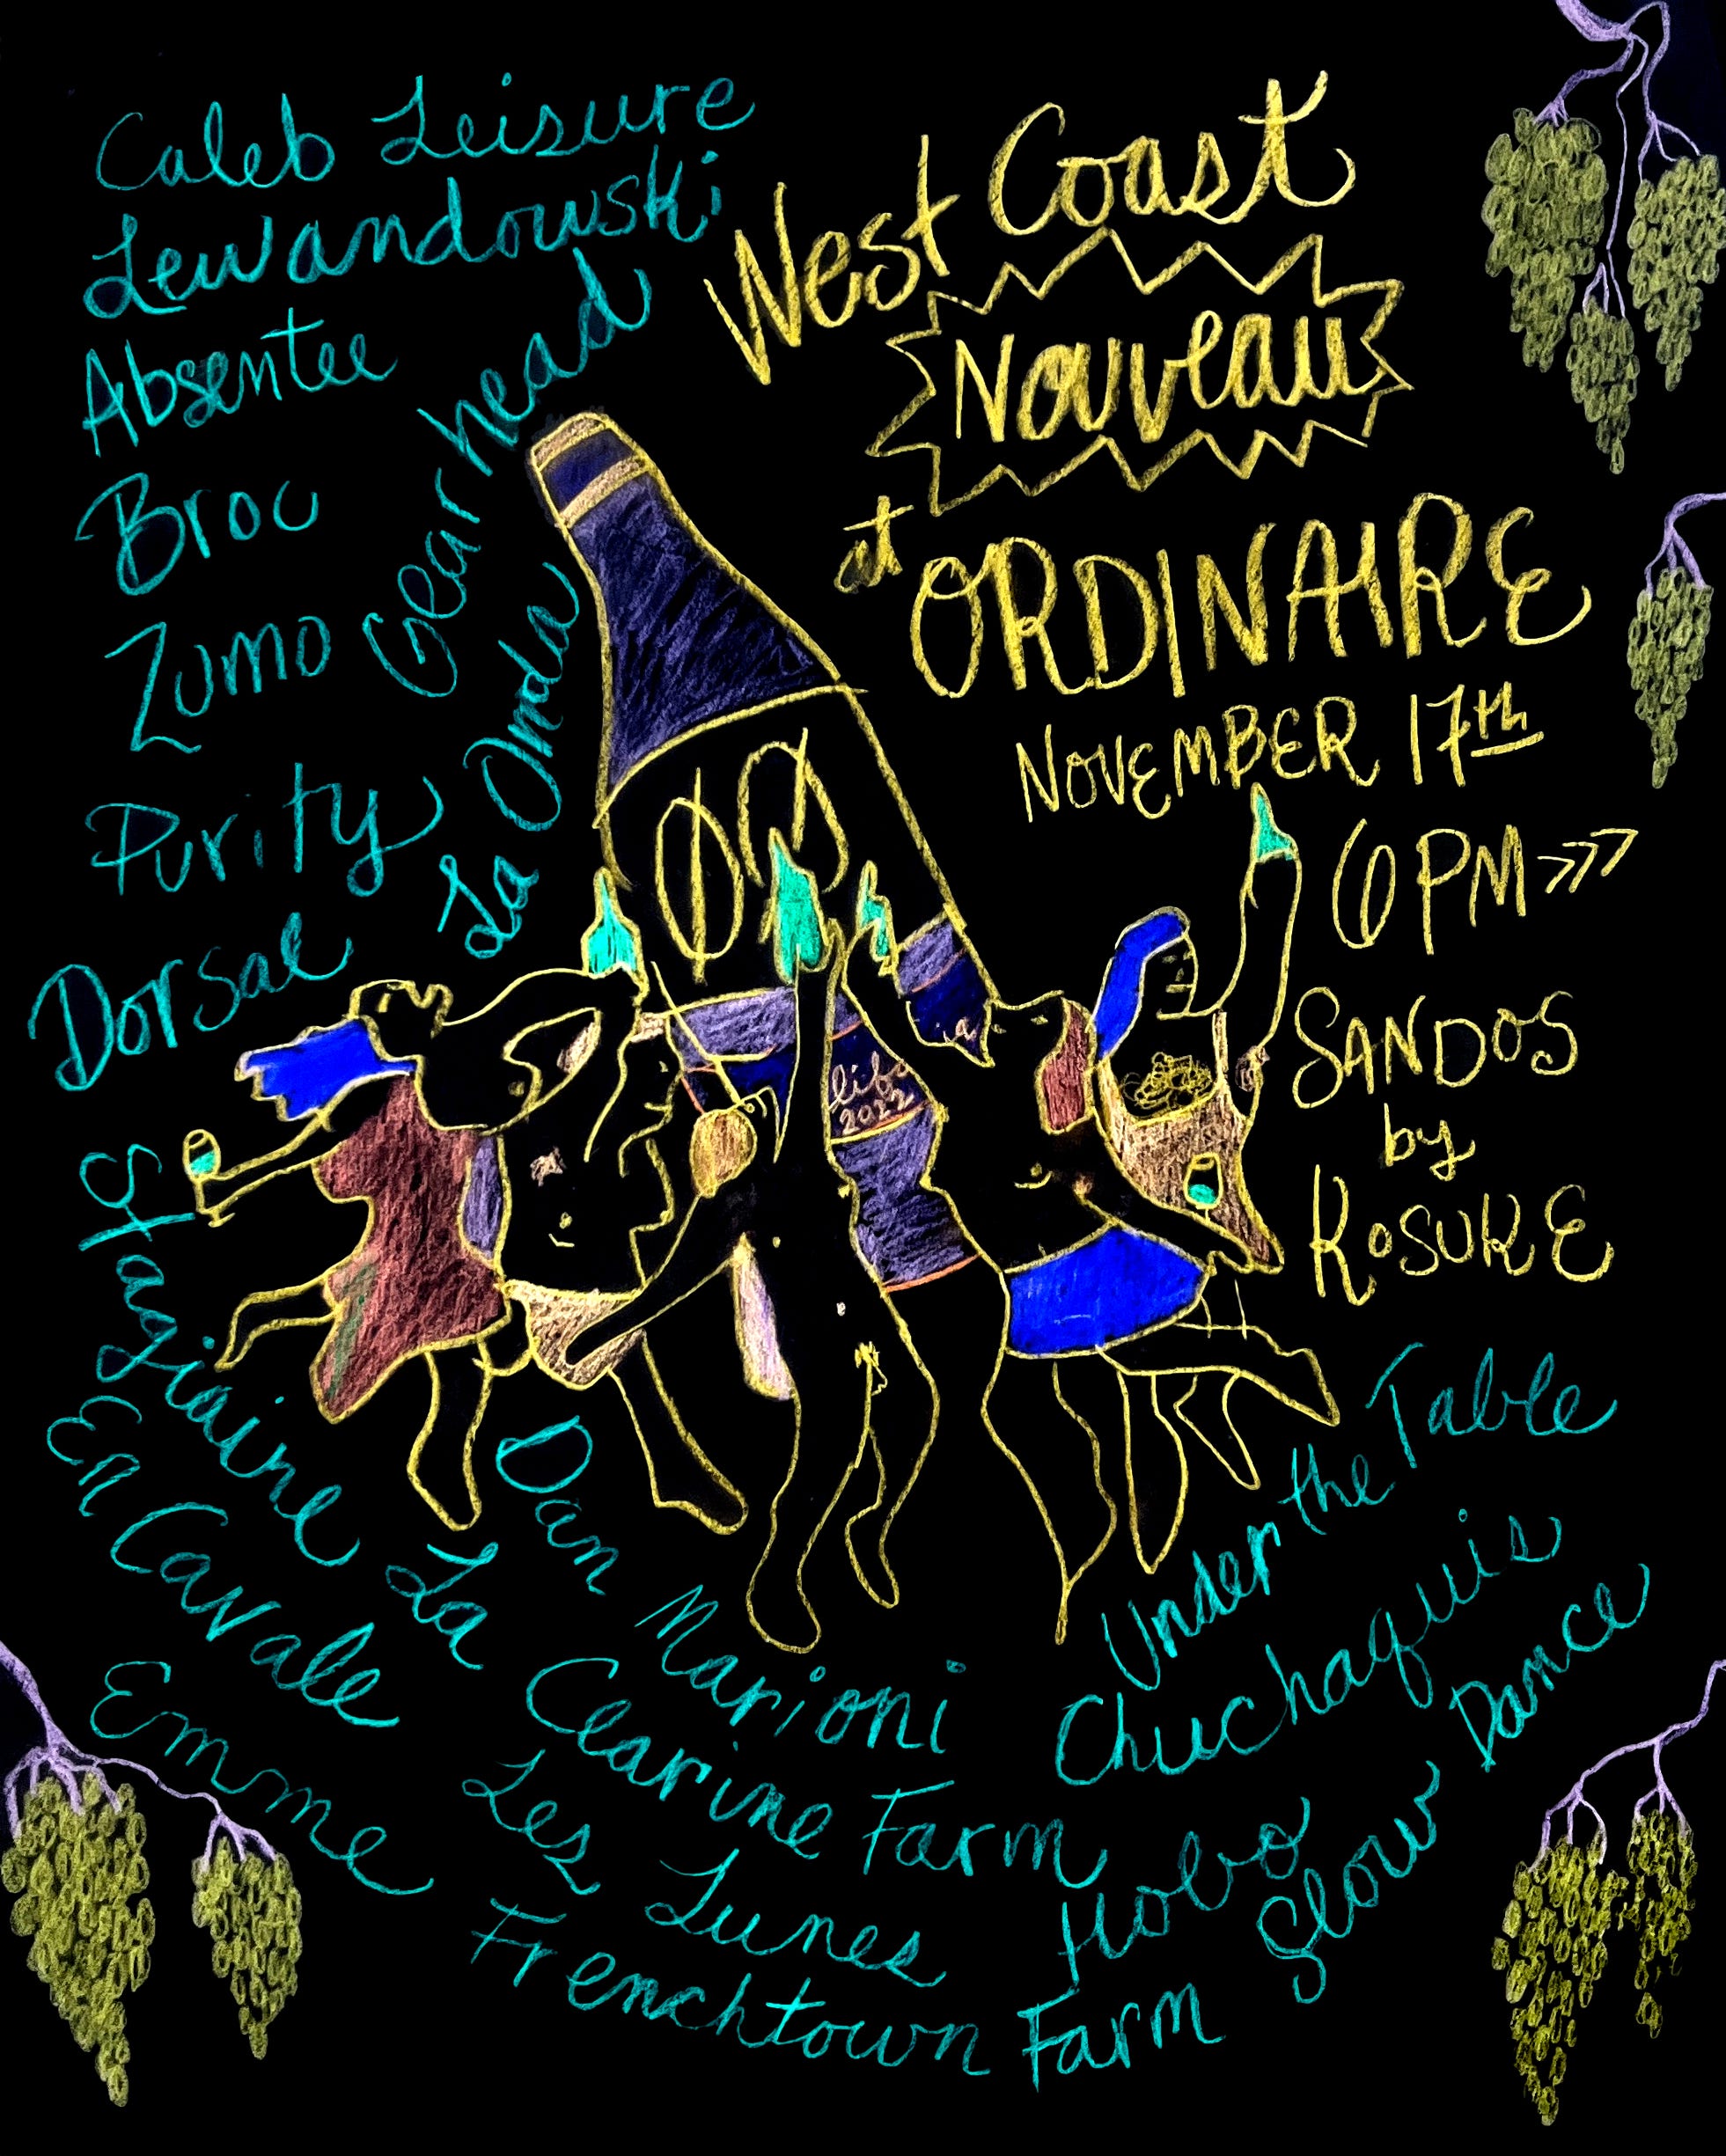 West Coast
Nouveau
at ORDINAIRE
NOVEMBER 17th
6PM
SANDOS
by
ROSUKE
Caleb Leisure
Lewandowski
Absentee
Gearhead
Broc
Zumo
La Onda
Purity
Dorsal
2022
Stagiaire
En Cavale
Emme
Dan Marioni
La Clarine Farm
Les Lunes
Frenchtown Farm
Under the Table
Chuchaquis
Hobo
Slow Dance